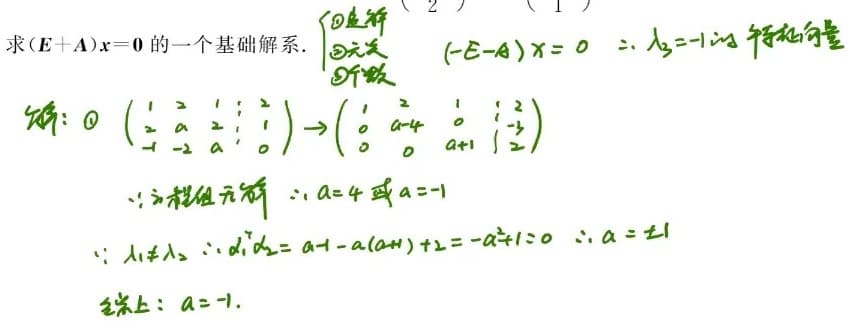 ( 2 ) ( 1 )
求(E+A)x=0 的一个基础解系. {①是解 ②无关 ③个数 (-E-A)x=0 ∴ λ₃=-1的特征向量
解: ① (1 2 1 ⋮ 2; 2 a 2 ⋮ 1; -1 -2 a ⋮ 0) → (1 2 1 ⋮ 2; 0 a-4 0 ⋮ -3; 0 0 a+1 ⋮ 2)
∵方程组无解 ∴ a=4 或 a=-1
∵ λ₁≠λ₂ ∴ α₁ᵀα₂ = a-1-a(a+1)+2 = -a²+1=0 ∴ a=±1
综上: a=-1.